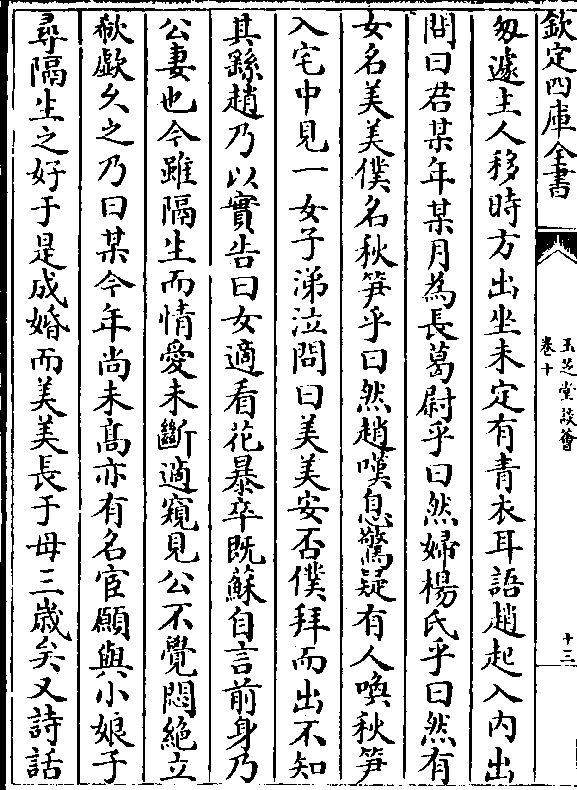 欽定四庫全書
玉芝堂談薈
卷十
十三
匆遽主人移時方出坐未定有青衣耳語趙起入內出
問曰君某年某月為長葛尉乎曰然婦楊氏乎曰然有
女名美美僕名秋笋乎曰然趙嘆息驚疑有人喚秋笋
入宅中見一女子涕泣問曰美美安否僕拜而出不知
其繇趙乃以實告曰女適看花暴卒既蘇自言前身乃
公妻也今雖隔生而情愛未斷適窺見公不覺悶絶立
欷歔久之乃曰某今年尚未髙亦有名宦願與小娘子
尋隔生之好于是成婚而美美長于母三歲矣又詩話